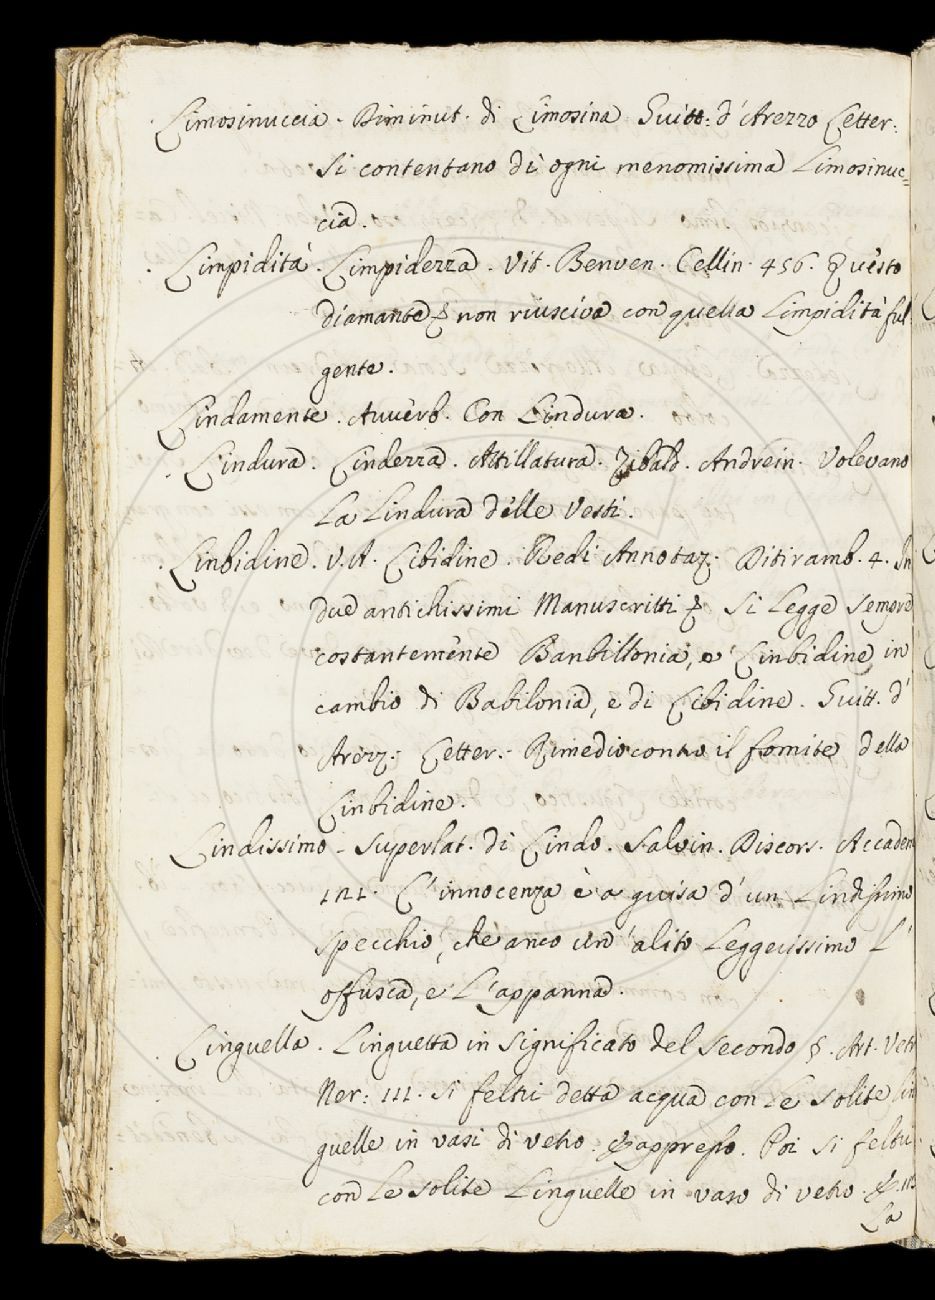 Limosinuccia. Diminut. di Limosina Guitt: d'Arezzo Letter:
Si contentano di ogni menomissima Limosinuc=
cia.
Limpidità. Limpidezza. Vit. Benven. Cellin. 456. Questo
diamante & non riusciva con quella Limpidità ful
gente.
Lindamente. Auverb. Con Lindura.
Lindura. Lindezza. Attillatura. Zibald. Andrein. Volevano
La Lindura delle Vesti.
Linbidine. V. A. Libidine. Redi Annotaz. Ditiramb. 4. In
due antichissimi Manuscritti & Si Legge sempre
costantemente Banbillonia, e Linbidine in
cambio di Babilonia, e di Libidine. Guitt. d'
Arezz: Letter: Rimedio contro il fomite della
Linbidine.
Lindissimo - Superlat. di Lindo. Salvin. Discors. Accadem
121. L'innocenza è a guisa d'un Lindissimo
specchio, che anco un alito Leggerissimo L'
offusca, e L'appanna.
Linguella. Linguetta in significato del secondo §. Art. Vetr
Ner: 111. Si feltri detta acqua con Le solite lin
guelle in vasi di vetro. & appresso. Poi si feltri
con Le solite Linguelle in vaso di vetro. &. 113
La